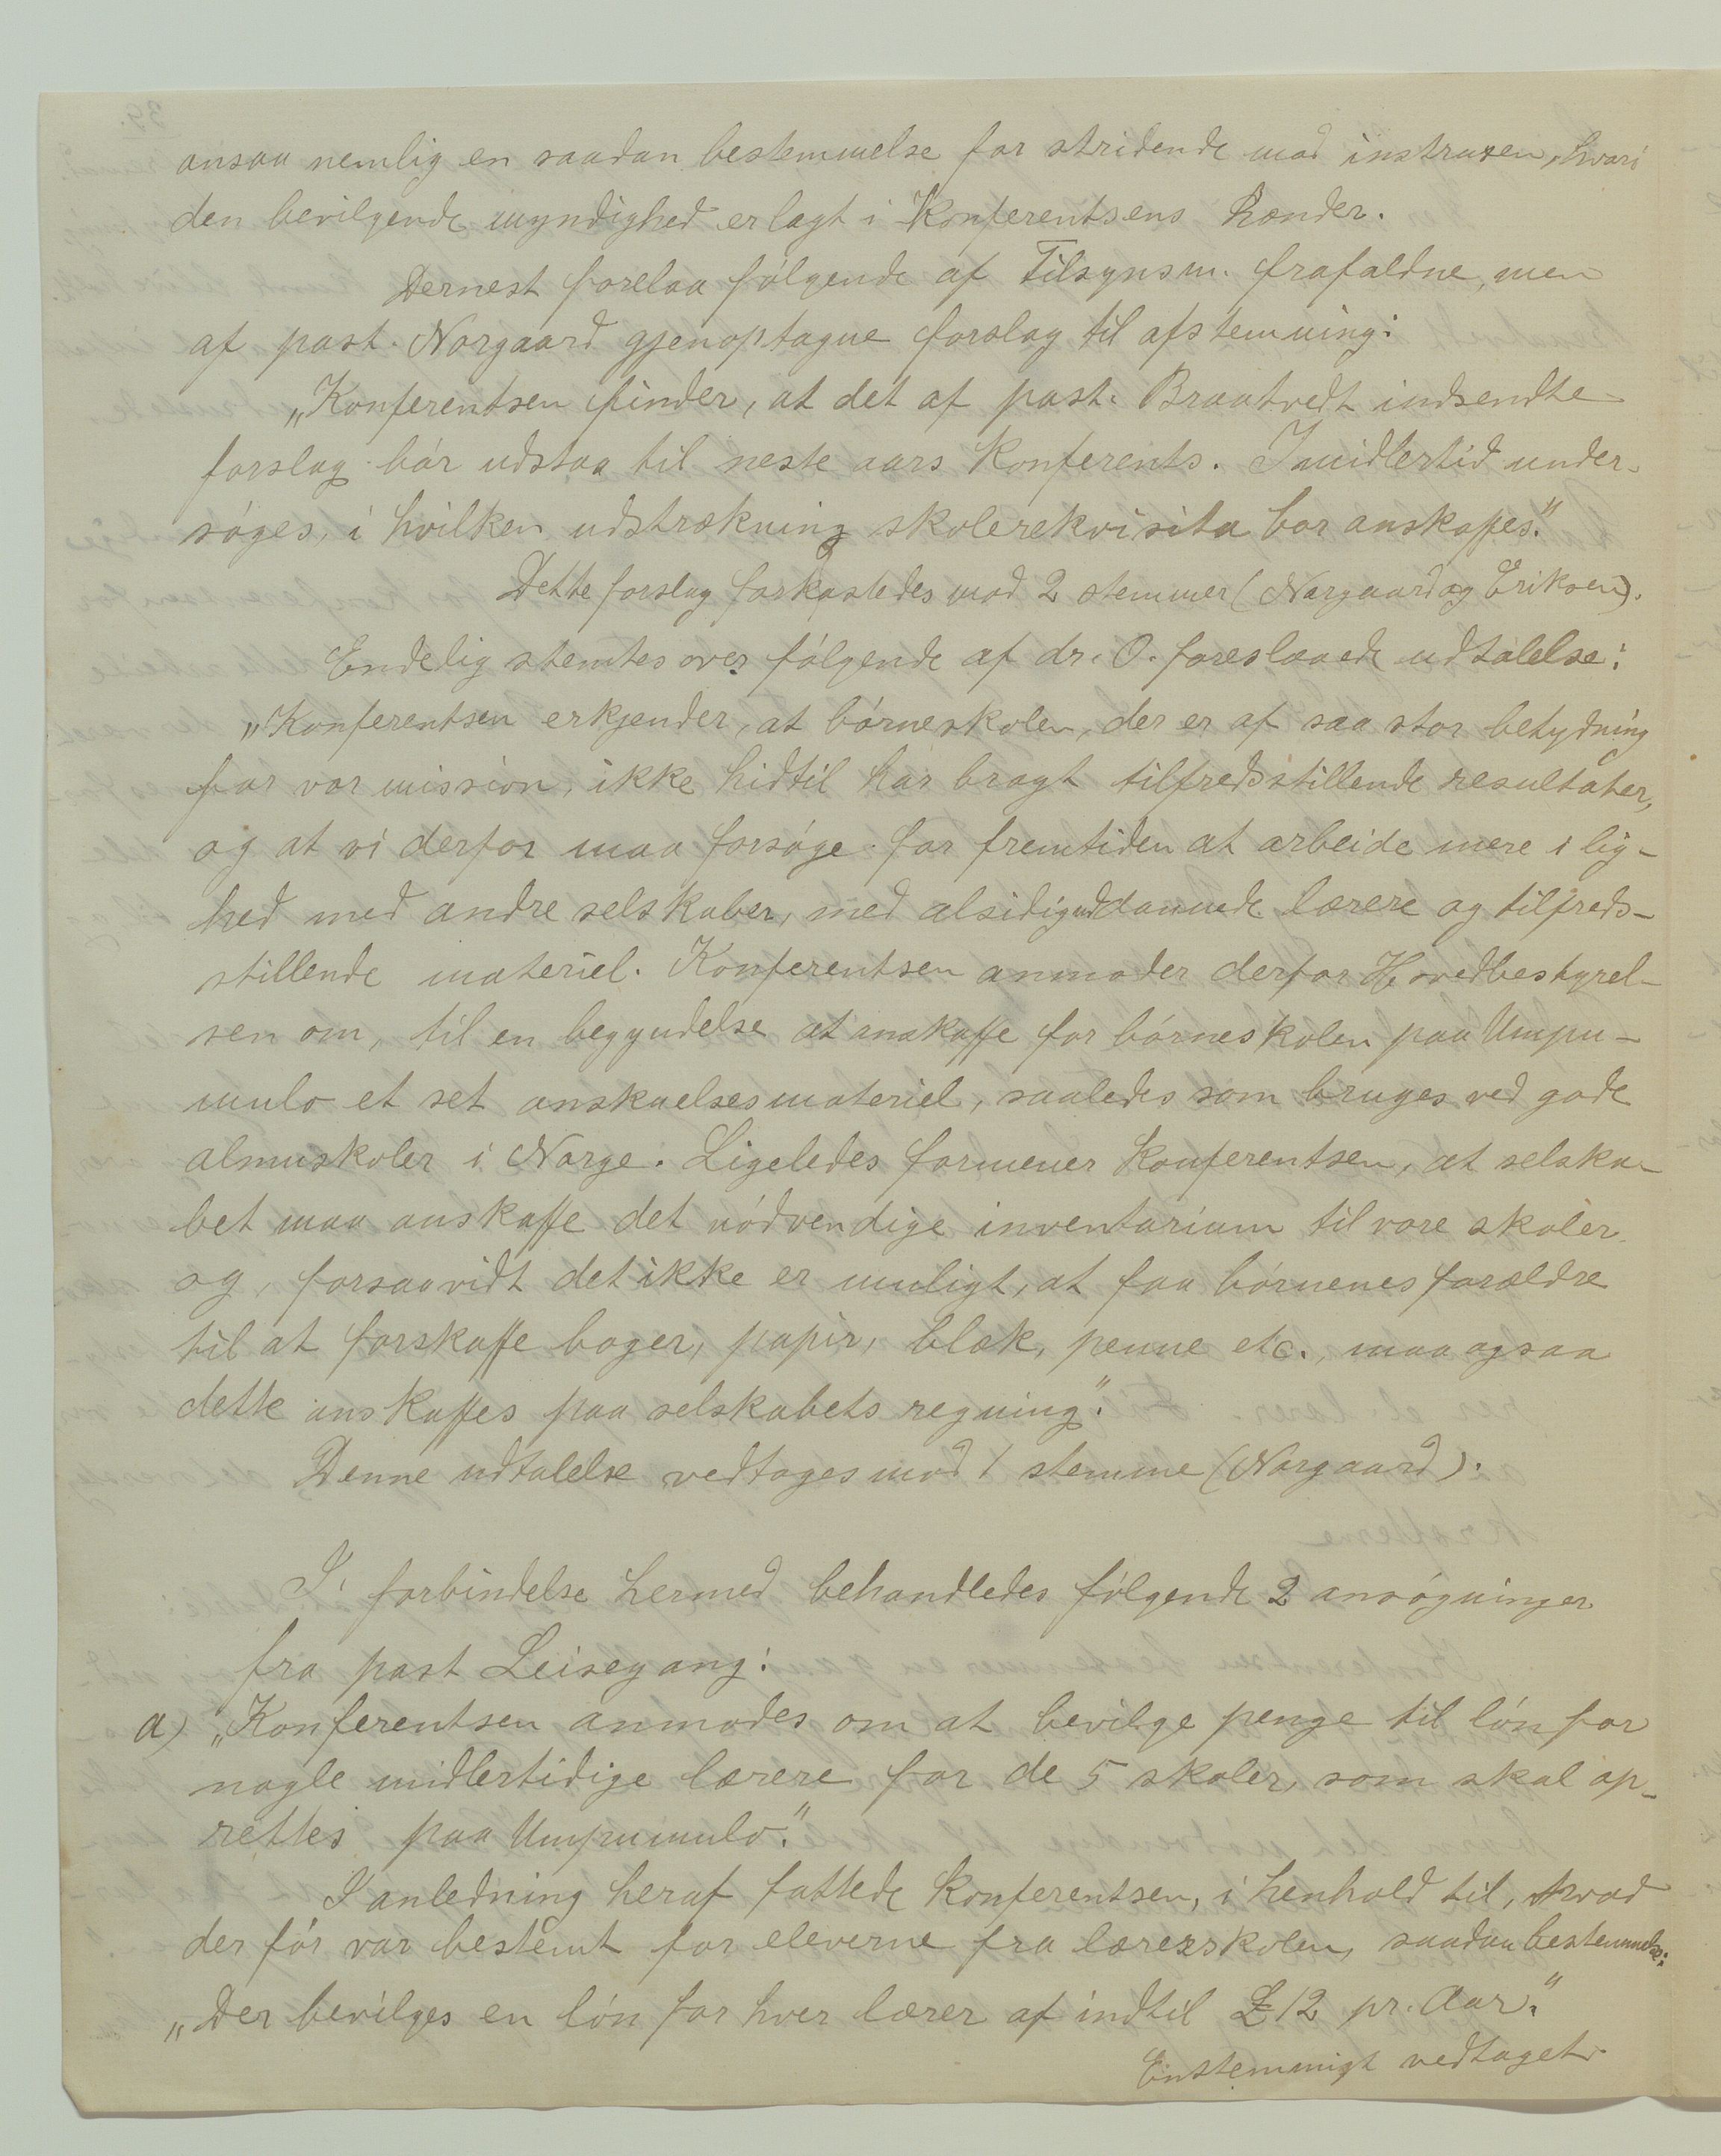 ansaa nemlig en saadan bestemmelse for stridende mod instruxen, hvori
den bevilgende myndighed er lagt i Konferentsens Hænder.
Dernest forelaa følgende af Tilsynsm. frafaldne, men
af past. Norgaard gjenoptagne forslag til afstemning:
„Konferentsen finder, at det af past. Braatvedt indsendte
forslag bør udstaa til neste aars Konferents. Imidlertid under-
søges, i hvilken udstrækning skolerekvisita bør anskaffes."
Dette forslag forkastedes mod 2 stemmer (Norgaard og Eriksen).
Endelig stemtes over følgende af dr. O. foreslaaede udtalelse:
„Konferentsen erkjender, at børneskolen, der er af saa stor betydning
for vor mission, ikke hidtil har bragt tilfredsstillende resultater,
og at vi derfor maa forsøge for fremtiden at arbeide mere i lig-
hed med andre selskaber, med alsidig uddannede lærere og tilfreds-
stillende materiel. Konferentsen anmoder derfor Hovedbestyrel-
sen om, til en begyndelse at anskaffe for børneskolen paa Umpu-
mulo et set anskuelsesmateriel, saaledes som bruges ved gode
almuskoler i Norge. Ligeledes formener Konferentsen, at selska-
bet maa anskaffe det nødvendige inventarium til vore skoler
og, forsaavidt det ikke er muligt, at faa børnenes forældre
til at forskaffe bøger, papir, blæk, penne etc., maa ogsaa
dette anskaffes paa selskabets regning".
Denne udtalelse vedtages mod 1 stemme (Norgaard).
I forbindelse hermed behandledes følgende 2 ansøgninger
fra past Leisegang:
a) „Konferentsen anmodes om at bevilge penge til løn for
nogle midlertidige lærere for de 5 skoler, som skal op-
rettes paa Umpumulo."
I anledning heraf fattede Konferentsen, i henhold til, hvad
der før var bestemt for eleverne fra lærerskolen, saadan bestemmelse:
„Der bevilges en løn for hver lærer af indtil £ 12 pr. Aar."
Enstemmigt vedtaget.